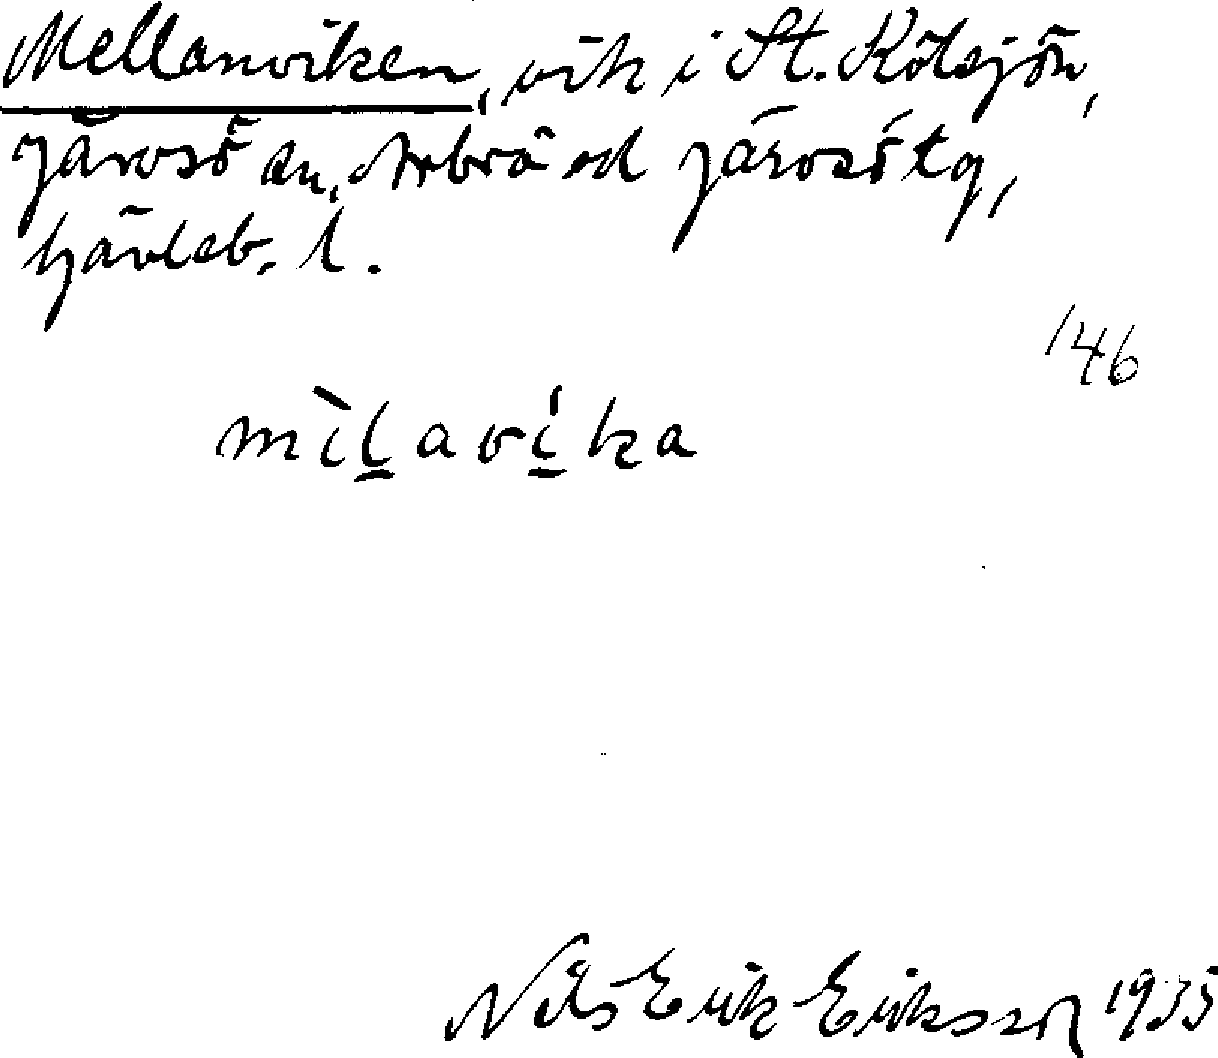 Mellanviken, vik i St. Kölsjön,
Järvsö sn, Arbrå och Järvsö tg,
Gävleb. l.
146
mìlavíka
Nils Erik Eriksson 1935